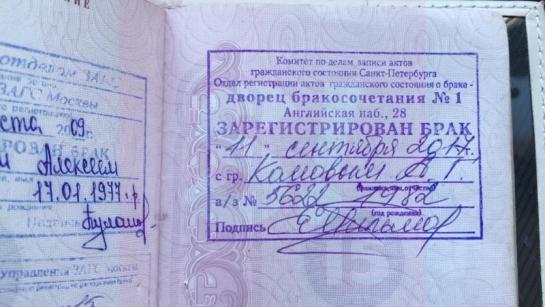 отделом ЗАГС
ЗАГС Москвы
ста 2009.
ОВАН БРАК
Алексеем
17.01.1977 г.
рождения
Подпись
управления ЗАГС
Комитет по делам записи актов
гражданского состояния Санкт-Петербурга
Отдел регистрации актов гражданского состояния о браке-
дворец бракосочетания № 1
Английская наб., 28
ЗАРЕГИСТРИРОВАН БРАК
"11" сентября 2017г.
с гр. А. Г.
(фамилия, имя, отчество)
а/з № 5622 1982
(год рождения)
Подпись